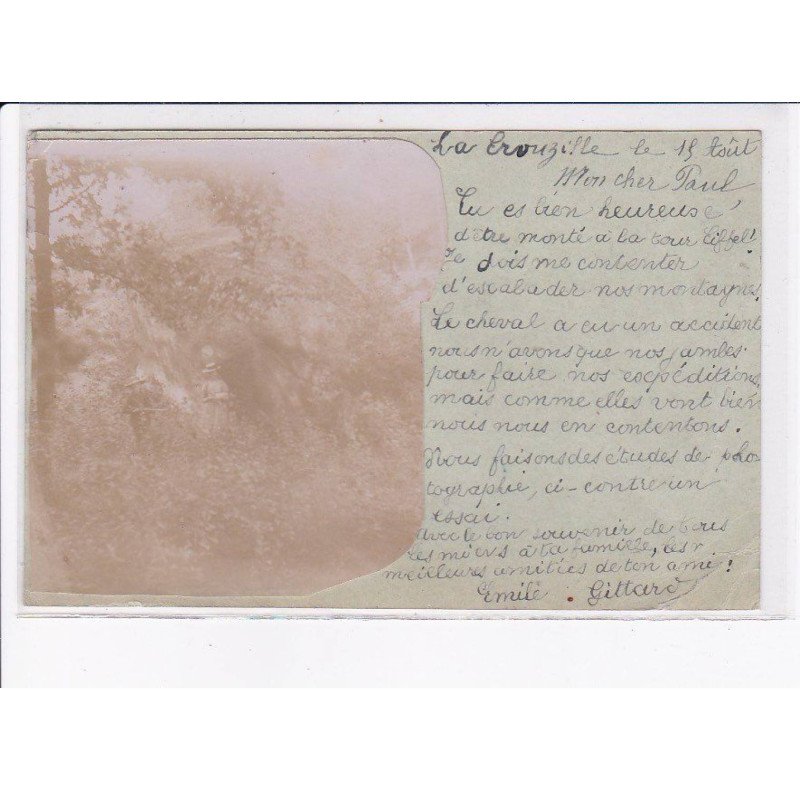 La Crouzille le 15 Août
Mon cher Paul
Tu es bien heureuse
d'être monté à la tour Eiffel!
Je dois me contenter
d'escalader nos montagnes.
Le cheval a eu un accident
nous n'avons que nos jambes
pour faire nos expéditions
mais comme elles vont bien
nous nous en contentons.
Nous faisons des études de pho
tographie, ci-contre un
essai.
Avec le bon souvenir de tous
les miens à ta famille, les
meilleures amitiés de ton ami!
Emile Gittard